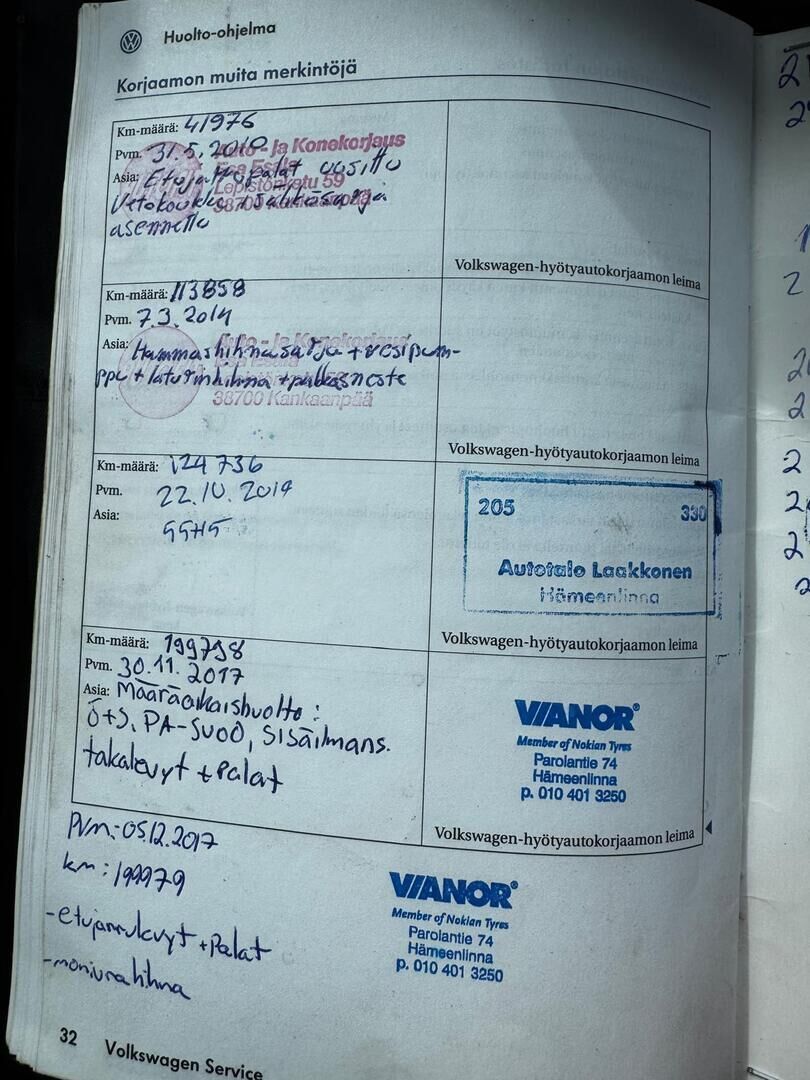 Huolto-ohjelma
Korjaamon muita merkintöjä
Km-määrä: 41976
Pvm. 31.5.2010
Asia: Etujarrupalat uusittu
Vetokoukku + sähkösarja
asennettu
Auto- ja Konekorjaus
Esa Esala
Lepistönketu 59
38700 Kankaanpää
Volkswagen-hyötyautokorjaamon leima
Km-määrä: 113858
Pvm. 7.3.2014
Asia: Hammashihnasarja + vesipum-
ppu + laturinhihna + pakkasneste
Auto- ja Konekorjaus
38700 Kankaanpää
Volkswagen-hyötyautokorjaamon leima
Km-määrä: 124736
Pvm. 22.10.2014
Asia:
55H5
205 330
Autotalo Laakkonen
Hämeenlinna
Volkswagen-hyötyautokorjaamon leima
Km-määrä: 199798
Pvm. 30.11.2017
Asia: Määräaikaishuolto:
Ö+S, PA-SUOD, Sisäilmans.
takalevyt + Palat
VIANOR
Member of Nokian Tyres
Parolantie 74
Hämeenlinna
p. 010 401 3250
Volkswagen-hyötyautokorjaamon leima
Pvm: 05.12.2017
km: 199979
-etujarrulevyt + Palat
-moniurahihna
VIANOR
Member of Nokian Tyres
Parolantie 74
Hämeenlinna
p. 010 401 3250
32 Volkswagen Service